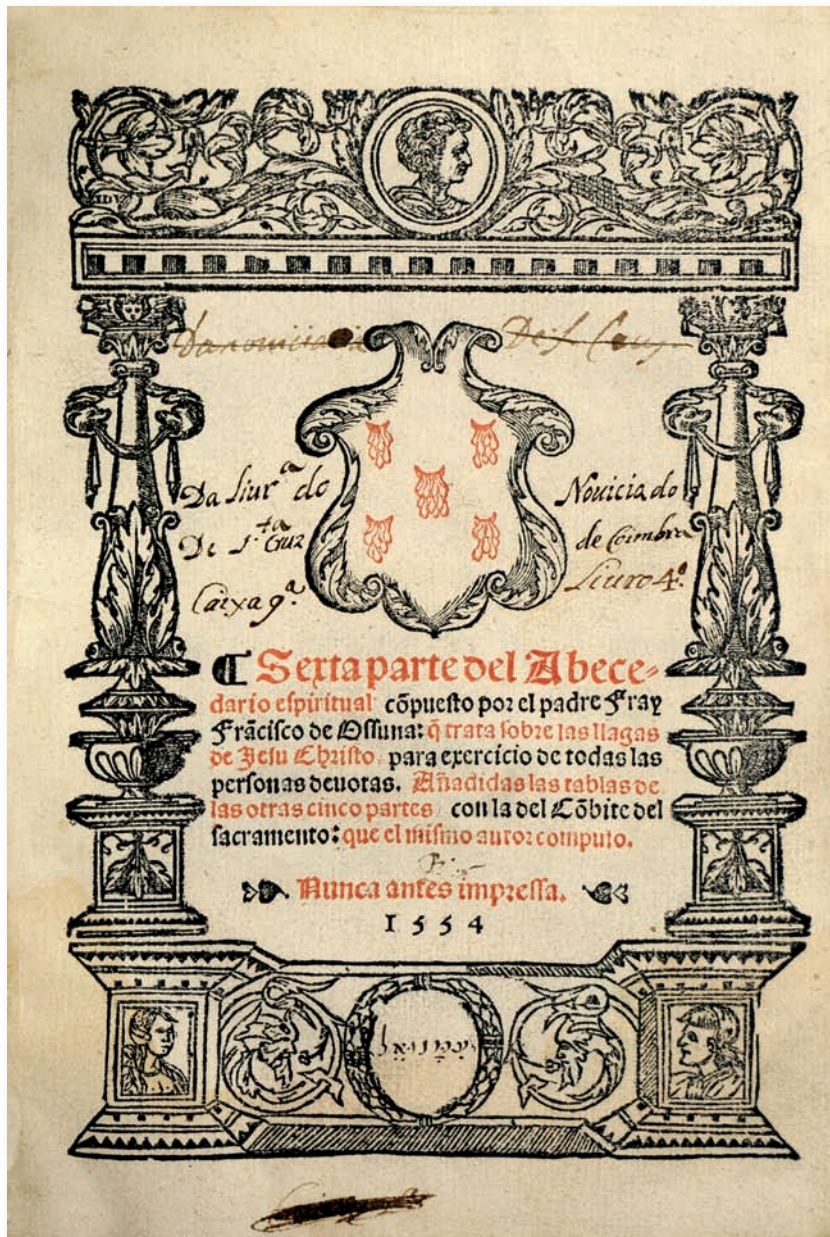 De S. Cruz
Da Liurª do Nouiciado
De S.ta Cruz de Coimbra
Caixa 9ª. Liuro 4º.
¶ Sexta parte del Abece-
dario espiritual cõpuesto por el padre Fray
Frãcisco de Ossuna: q̃ trata sobre las llagas
de Jesu Christo para exercicio de todas las
personas deuotas. Añadidas las tablas de
las otras cinco partes con la del Cõbite del
sacramento: que el mismo autor compuso.
Nunca antes impressa.
1554